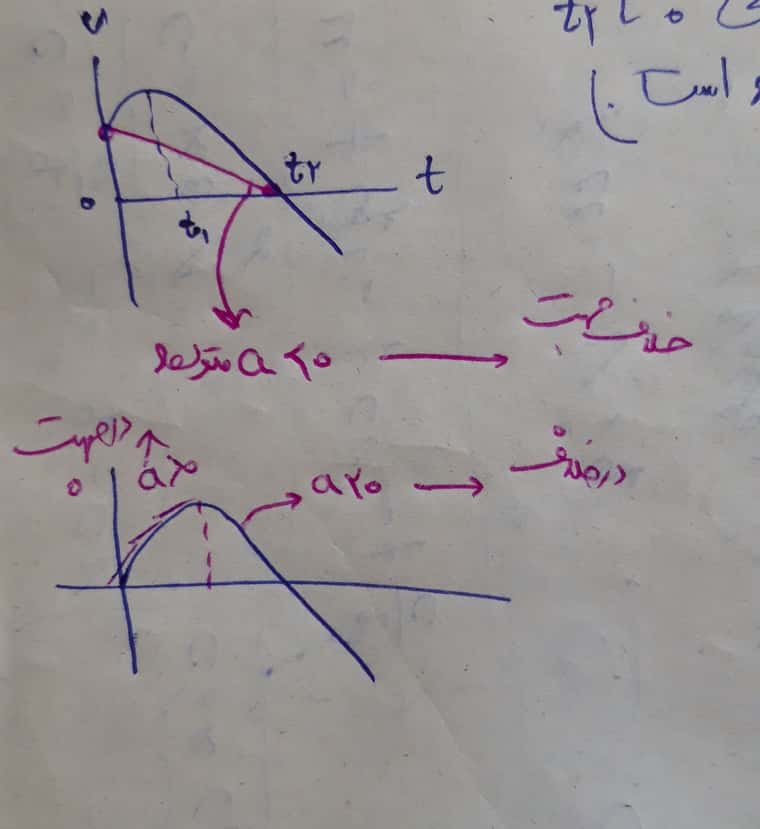 t۲ تا ۰
است.
v
t۲
t
۰
t۱
متوسط a < ۰ → خلاف جهت
در جهت
a > ۰
۰
a < ۰ → در خلاف